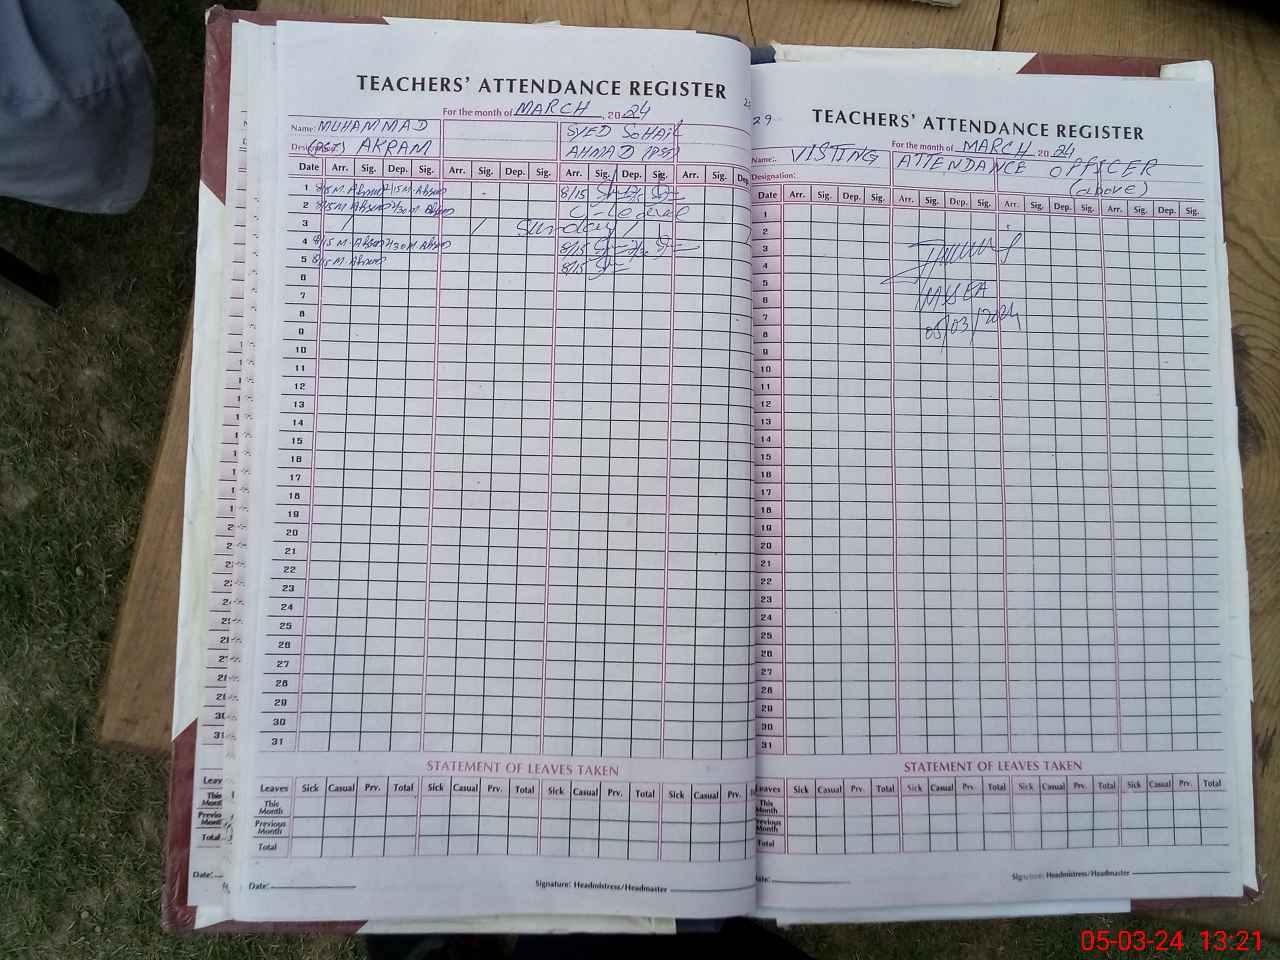 TEACHERS' ATTENDANCE REGISTER
For the month of MARCH, 2024
Name: MUHAMMAD
SYED SOHAIL
Designation: (PST) AKRAM
AHMAD (PST)
Date Arr. Sig. Dep. Sig. Arr. Sig. Dep. Sig. Arr. Sig. Dep. Sig. Arr. Sig. Dep.
1 8/15 M. Akram M. Akram 8/15
2 8/15 M. Akram 1/30 M. Akram
3 / / Sunday /
4 8/15 M. Akram 1/30 M. Akram 8/15
5 8/15 M. Akram 8/15
6
7
8
9
10
11
12
13
14
15
16
17
18
19
20
21
22
23
24
25
26
27
28
29
30
31
STATEMENT OF LEAVES TAKEN
Leaves Sick Casual Prv. Total Sick Casual Prv. Total Sick Casual Prv. Total Sick Casual Prv.
This Month
Previous Month
Total
Date:
Signature: Headmistress/Headmaster
29
TEACHERS' ATTENDANCE REGISTER
For the month of MARCH 2024
Name: VISTING ATTENDANCE OFFICER
Designation: (above)
Date Arr. Sig. Dep. Sig. Arr. Sig. Dep. Sig. Arr. Sig. Dep. Sig. Arr. Sig. Dep. Sig.
1
2
3
4
5
6
7
8
9
10
11
12
13
14
15
16
17
18
19
20
21
22
23
24
25
26
27
28
29
30
31
05/03/2024
STATEMENT OF LEAVES TAKEN
Leaves Sick Casual Prv. Total Sick Casual Prv. Total Sick Casual Prv. Total Sick Casual Prv. Total
This Month
Previous Month
Total
Date:
Signature: Headmistress/Headmaster
05-03-24 13:21